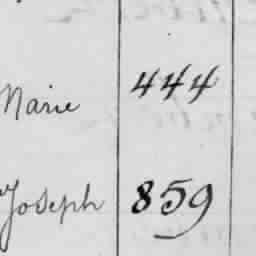 Marie 444
Joseph 859